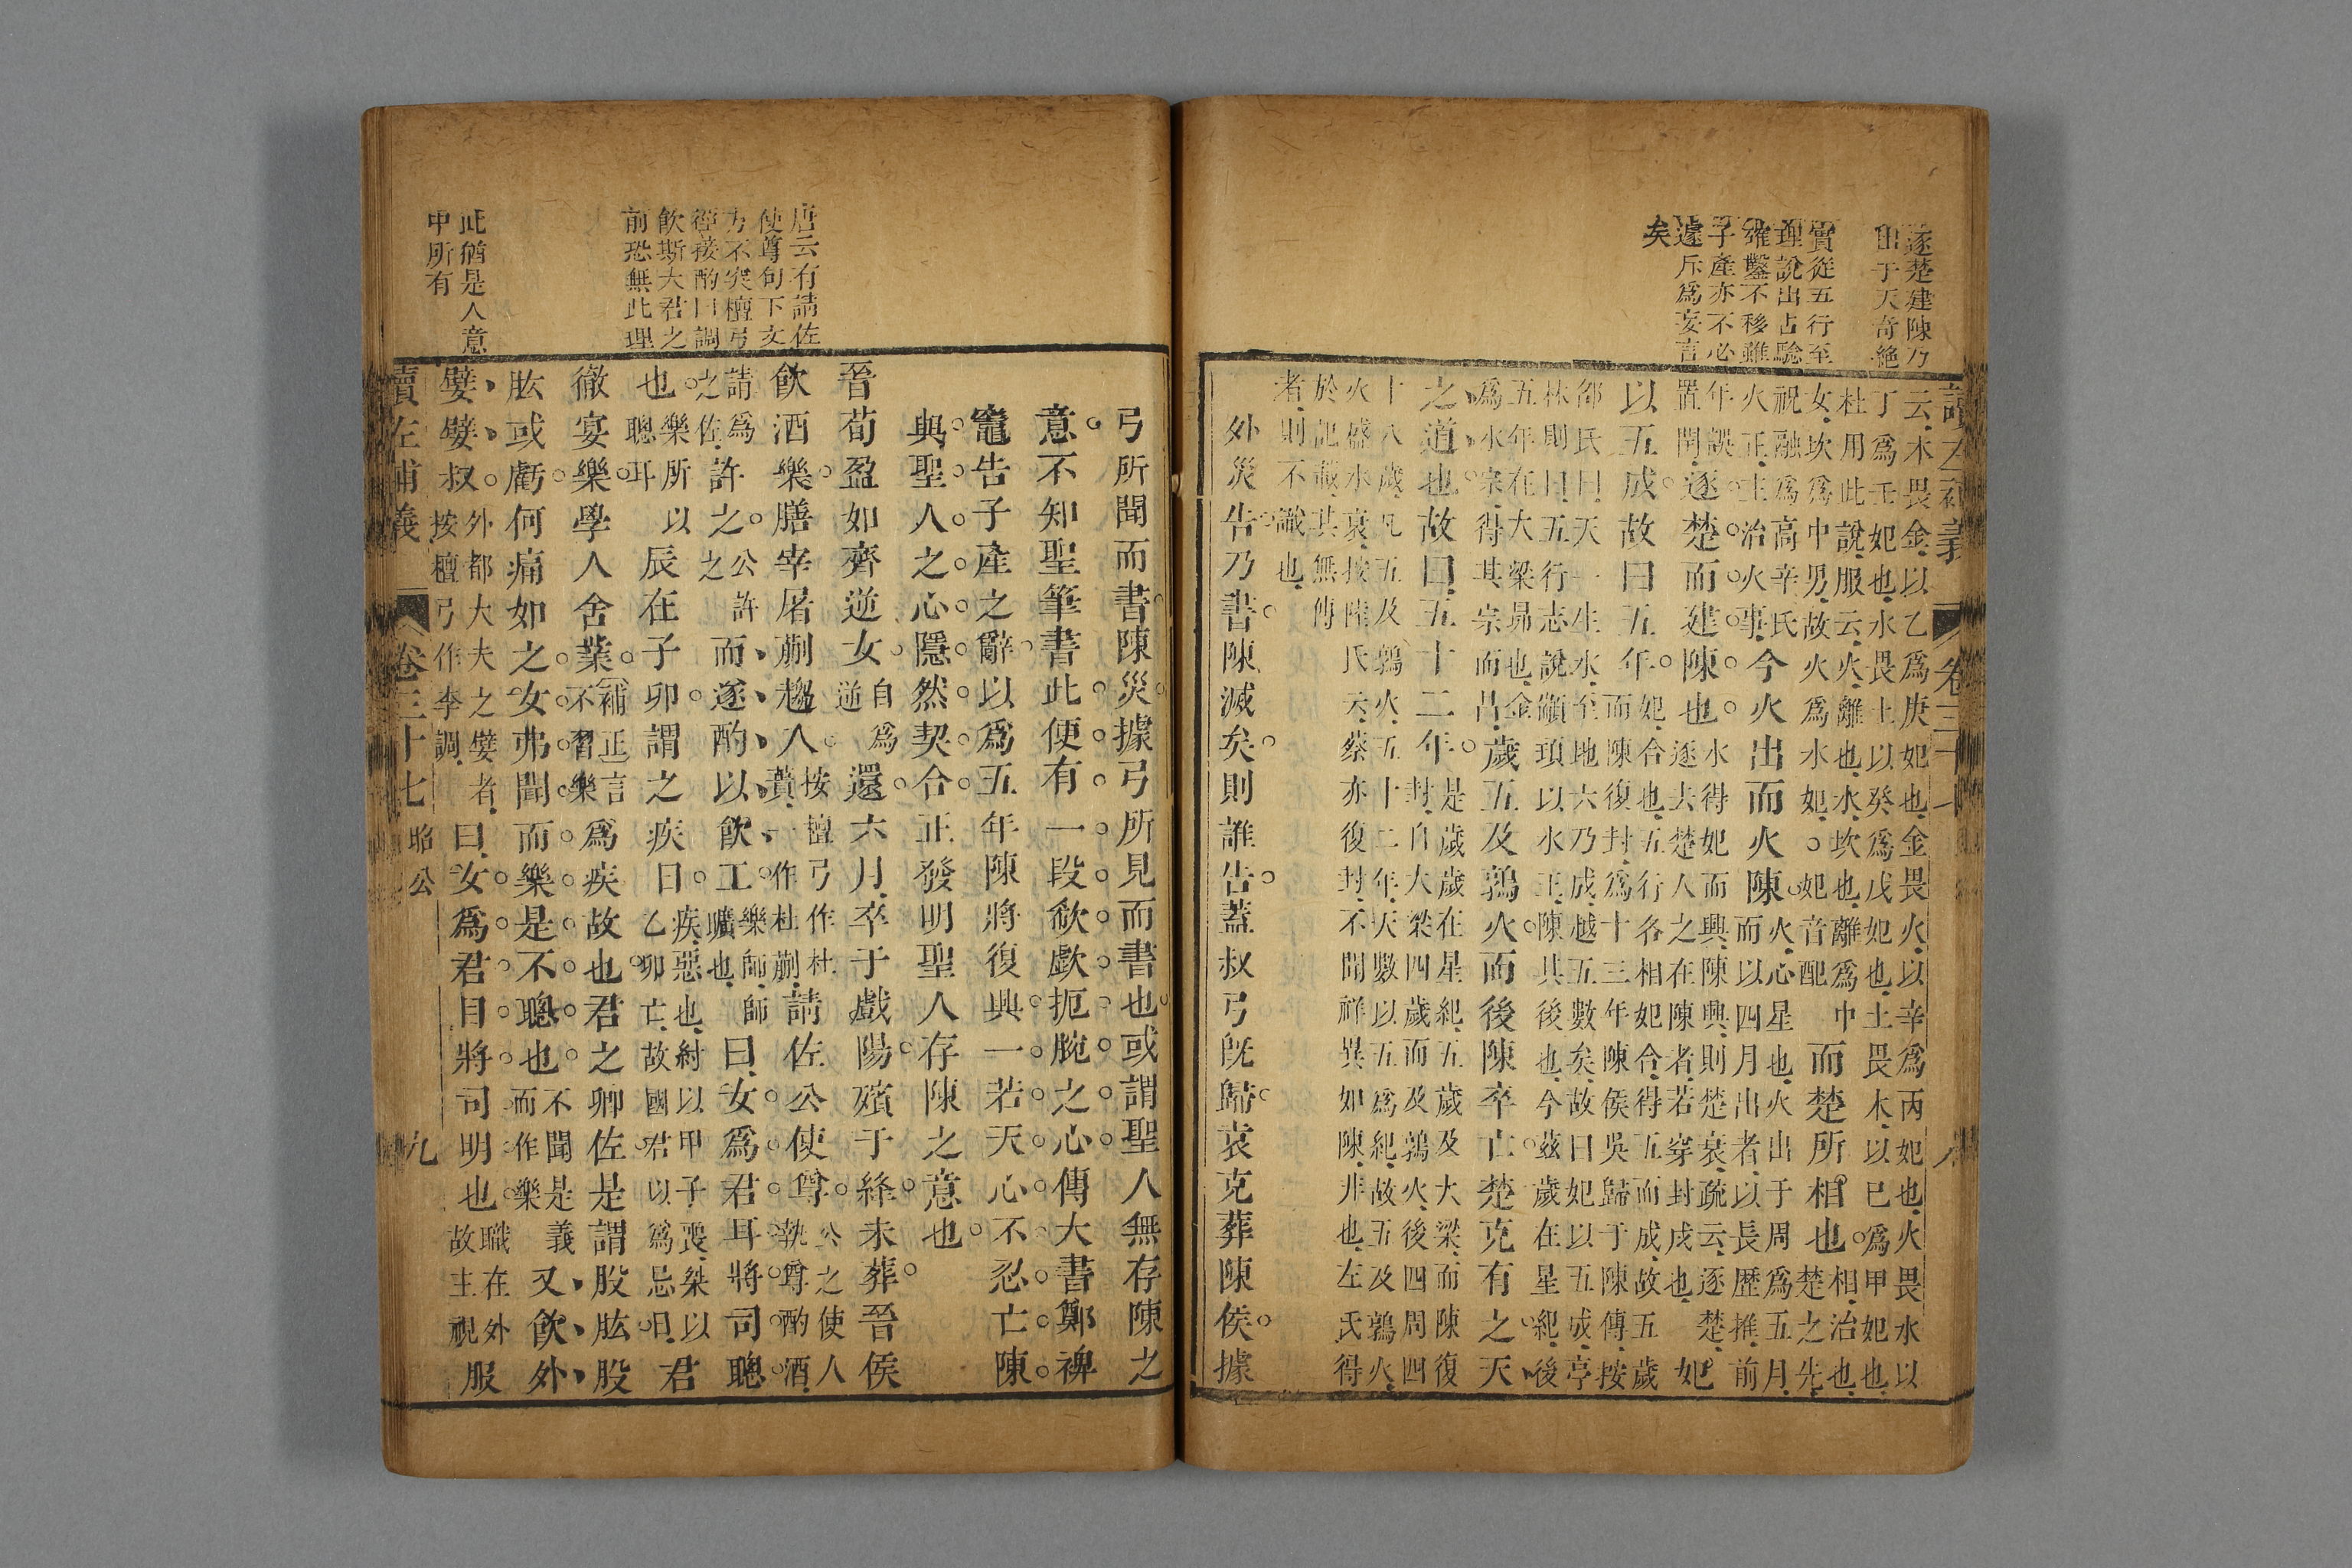 逐楚建陳乃
由于天奇絶
實從五行至
理說出占驗
確鑿不移雖
子產亦不必
遽斥爲妄言
矣
讀左補義 卷三十七 八
云木畏金以乙爲庚妃也金畏火以辛爲丙妃也火畏水以
丁爲壬妃也水畏土以癸爲戊妃也土畏木以巳爲甲妃也
杜用此說服云火離也水坎也離爲中
女坎爲中男故火爲水妃○妃音配
而楚所相也
相治也
楚之先
祝融爲高辛氏
火正主治火事
今火出而火陳
火心星也火出于周爲五月
而以四月出者以長歷推前
年誤
置閏
逐楚而建陳也
水得妃而興陳興則楚衰疏云逐楚
逐去楚人之在陳者若穿封戌也
妃
以五成故曰五年
妃合也五行各相妃合得五而成故五歲
而陳復封爲十三年陳侯吳歸于陳傳按
邵氏曰天一生水至地六乃成越五數矣故曰妃以五成亭
林則曰五行志說顓頊以水王陳其後也今茲歲在星紀後
五年在大梁昴也金
爲水宗得其宗而昌
歲五及鶉火而後陳卒亡楚克有之天
之道也故曰五十二年
是歲歲在星紀五歲及大梁而陳復
封自大梁四歲而及鶉火後四周四
十八歲凡五及鶉火五十二年天數以五爲紀故五及鶉火
火盛水衰按陸氏云蔡亦復封不聞祥異如陳非也左氏得
於記載其無傳
者則不識也
外災告乃書陳滅矣則誰告蓋叔弓旣歸袁克葬陳侯據
唐云有請佐
使尊句下文
方不突檀弓
徑接酌曰調
飲斯大君之
前恐無此理
此猶是人意
中所有
弓所聞而書陳災據弓所見而書也或謂聖人無存陳之
意不知聖筆書此便有一段欷歔扼腕之心傳大書鄭裨
竈告子產之辭以爲五年陳將復興一若天心不忍亡陳
與聖人之心隱然契合正發明聖人存陳之意也
晉荀盈如齊逆女
自爲
逆
還六月卒于戲陽殯于絳未葬晉侯
飲酒樂膳宰屠蒯趨入
按檀弓作杜
蕢一作杜蒯
請佐公使尊
公之使人
執尊酌酒
請爲
之佐
許之
公許
之
而遂酌以飲工
樂師師
曠也
曰女爲君耳將司聰
也
樂所以
聰耳
辰在子卯謂之疾日
疾惡也紂以甲子喪桀以
乙卯亡故國君以爲忌日
君
徹宴樂學人舍業
補正言
不習樂
爲疾故也君之卿佐是謂股
肱或虧何痛如之女弗聞而樂是不聰也
不聞是義
而作樂
又飲外
嬖嬖叔
外都大夫之嬖者
按檀弓作李調
曰女爲君目將司明也
職在外
故主視
服
讀左補義 卷三十七 昭公 九